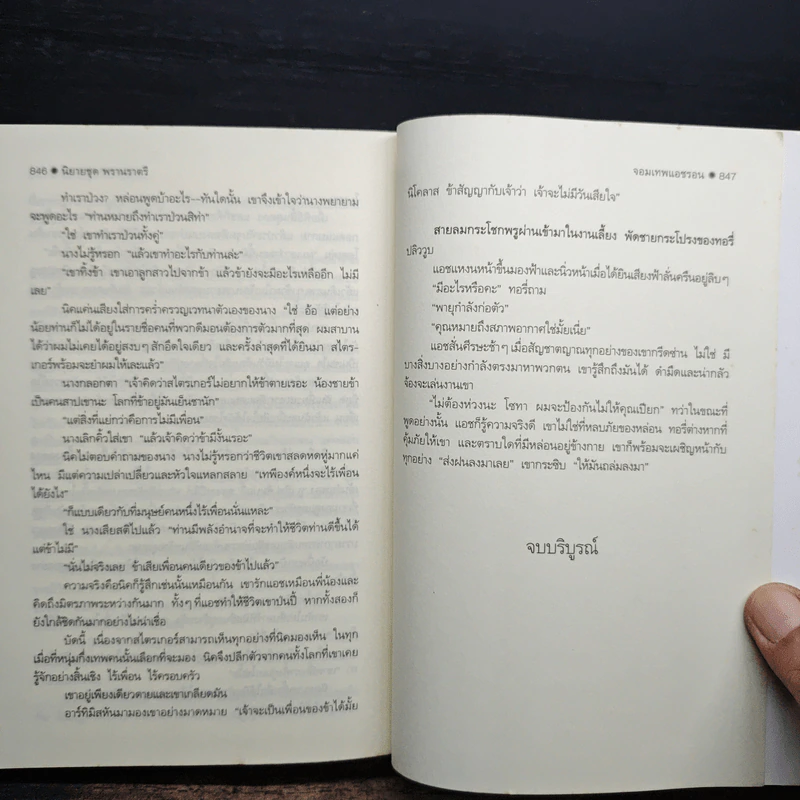 846 ● นิยายชุด พรานราตรี
ทำเราป่วง? หล่อนพูดบ้าอะไร--ทันใดนั้น เขาจึงเข้าใจว่านางพยายาม
จะพูดอะไร "ท่านหมายถึงทำเราป่วนสิท่า"
"ใช่ เขาทำเราป่วนทั้งคู่"
นางไม่รู้หรอก "แล้วเขาทำอะไรกับท่านล่ะ"
"เขาทิ้งข้า เขาเอาลูกสาวไปจากข้า แล้วข้ายังจะมีอะไรเหลืออีก ไม่มี
เลย"
นิคแค่นเสียงใส่การคร่ำครวญเวทนาตัวเองของนาง "ใช่ อ้อ แต่อย่าง
น้อยท่านก็ไม่ได้อยู่ในรายชื่อคนที่พวกดีมอนต้องการตัวมากที่สุด ผมสาบาน
ได้ว่าผมไม่เคยได้อยู่สงบๆ สักอึดใจเดียว และครั้งล่าสุดที่ได้ยินมา สไตร-
เกอร์พร้อมจะยำผมให้เละแล้ว"
นางกลอกตา "เจ้าคิดว่าสไตรเกอร์ไม่อยากให้ข้าตายเรอะ น้องชายข้า
เป็นคนสาปเขานะ โลกที่ข้าอยู่มันเย็นชานัก"
"แต่สิ่งที่แย่กว่าคือการไม่มีเพื่อน"
นางเลิกคิ้วใส่เขา "แล้วเจ้าคิดว่าข้ามีงั้นเรอะ"
นิคไม่ตอบคำถามของนาง นางไม่รู้หรอกว่าชีวิตเขาสลดหดหู่มากแค่
ไหน มีแต่ความเปล่าเปลี่ยวและหัวใจแหลกสลาย "เทพีองค์หนึ่งจะไร้เพื่อน
ได้ยังไง"
"ก็แบบเดียวกับที่มนุษย์คนหนึ่งไร้เพื่อนนั่นแหละ"
ใช่ นางเสียสติไปแล้ว "ท่านมีพลังอำนาจที่จะทำให้ชีวิตท่านดีขึ้นได้
แต่ข้าไม่มี"
"นั่นไม่จริงเลย ข้าเสียเพื่อนคนเดียวของข้าไปแล้ว"
ความจริงคือนิคก็รู้สึกเช่นนั้นเหมือนกัน เขารักแอชเหมือนพี่น้องและ
คิดถึงมิตรภาพระหว่างกันมาก ทั้งๆ ที่แอชทำให้ชีวิตเขาป่นปี้ หากทั้งสองก็
ยังใกล้ชิดกันมากอย่างไม่น่าเชื่อ
บัดนี้ เนื่องจากสไตรเกอร์สามารถเห็นทุกอย่างที่นิคมองเห็น ในทุก
เมื่อที่หนุ่มกึ่งเทพคนนั้นเลือกที่จะมอง นิคจึงปลีกตัวจากคนทั้งโลกที่เขาเคย
รู้จักอย่างสิ้นเชิง ไร้เพื่อน ไร้ครอบครัว
เขาอยู่เพียงเดียวดายและเขาเกลียดมัน
อาร์ทิมิสหันมามองเขาอย่างมาดหมาย "เจ้าจะเป็นเพื่อนของข้าได้มั้ย
จอมเทพแอชรอน ● 847
นิโคลาส ข้าสัญญากับเจ้าว่า เจ้าจะไม่มีวันเสียใจ"
สายลมกระโชกพรูผ่านเข้ามาในงานเลี้ยง พัดชายกระโปรงของทอรี่
ปลิววูบ
แอชแหงนหน้าขึ้นมองฟ้าและนิ่วหน้าเมื่อได้ยินเสียงฟ้าลั่นครืนอยู่ลิบๆ
"มีอะไรหรือคะ" ทอรี่ถาม
"พายุกำลังก่อตัว"
"คุณหมายถึงสภาพอากาศใช่มั้ยเนี่ย"
แอชสั่นศีรษะช้าๆ เมื่อสัญชาตญาณทุกอย่างของเขากรีดซ่าน ไม่ใช่ มี
บางสิ่งบางอย่างกำลังตรงมาหาพวกตน เขารู้สึกถึงมันได้ ดำมืดและน่ากลัว
จ้องจะเล่นงานเขา
"ไม่ต้องห่วงนะ โซทา ผมจะป้องกันไม่ให้คุณเปียก" ทว่าในขณะที่
พูดอย่างนั้น แอชก็รู้ความจริงดี เขาไม่ใช่ที่หลบภัยของหล่อน ทอรี่ต่างหากที่
คุ้มภัยให้เขา และตราบใดที่มีหล่อนอยู่ข้างกาย เขาก็พร้อมจะเผชิญหน้ากับ
ทุกอย่าง "ส่งฝนลงมาเลย" เขากระซิบ "ให้มันถล่มลงมา"
จบบริบูรณ์